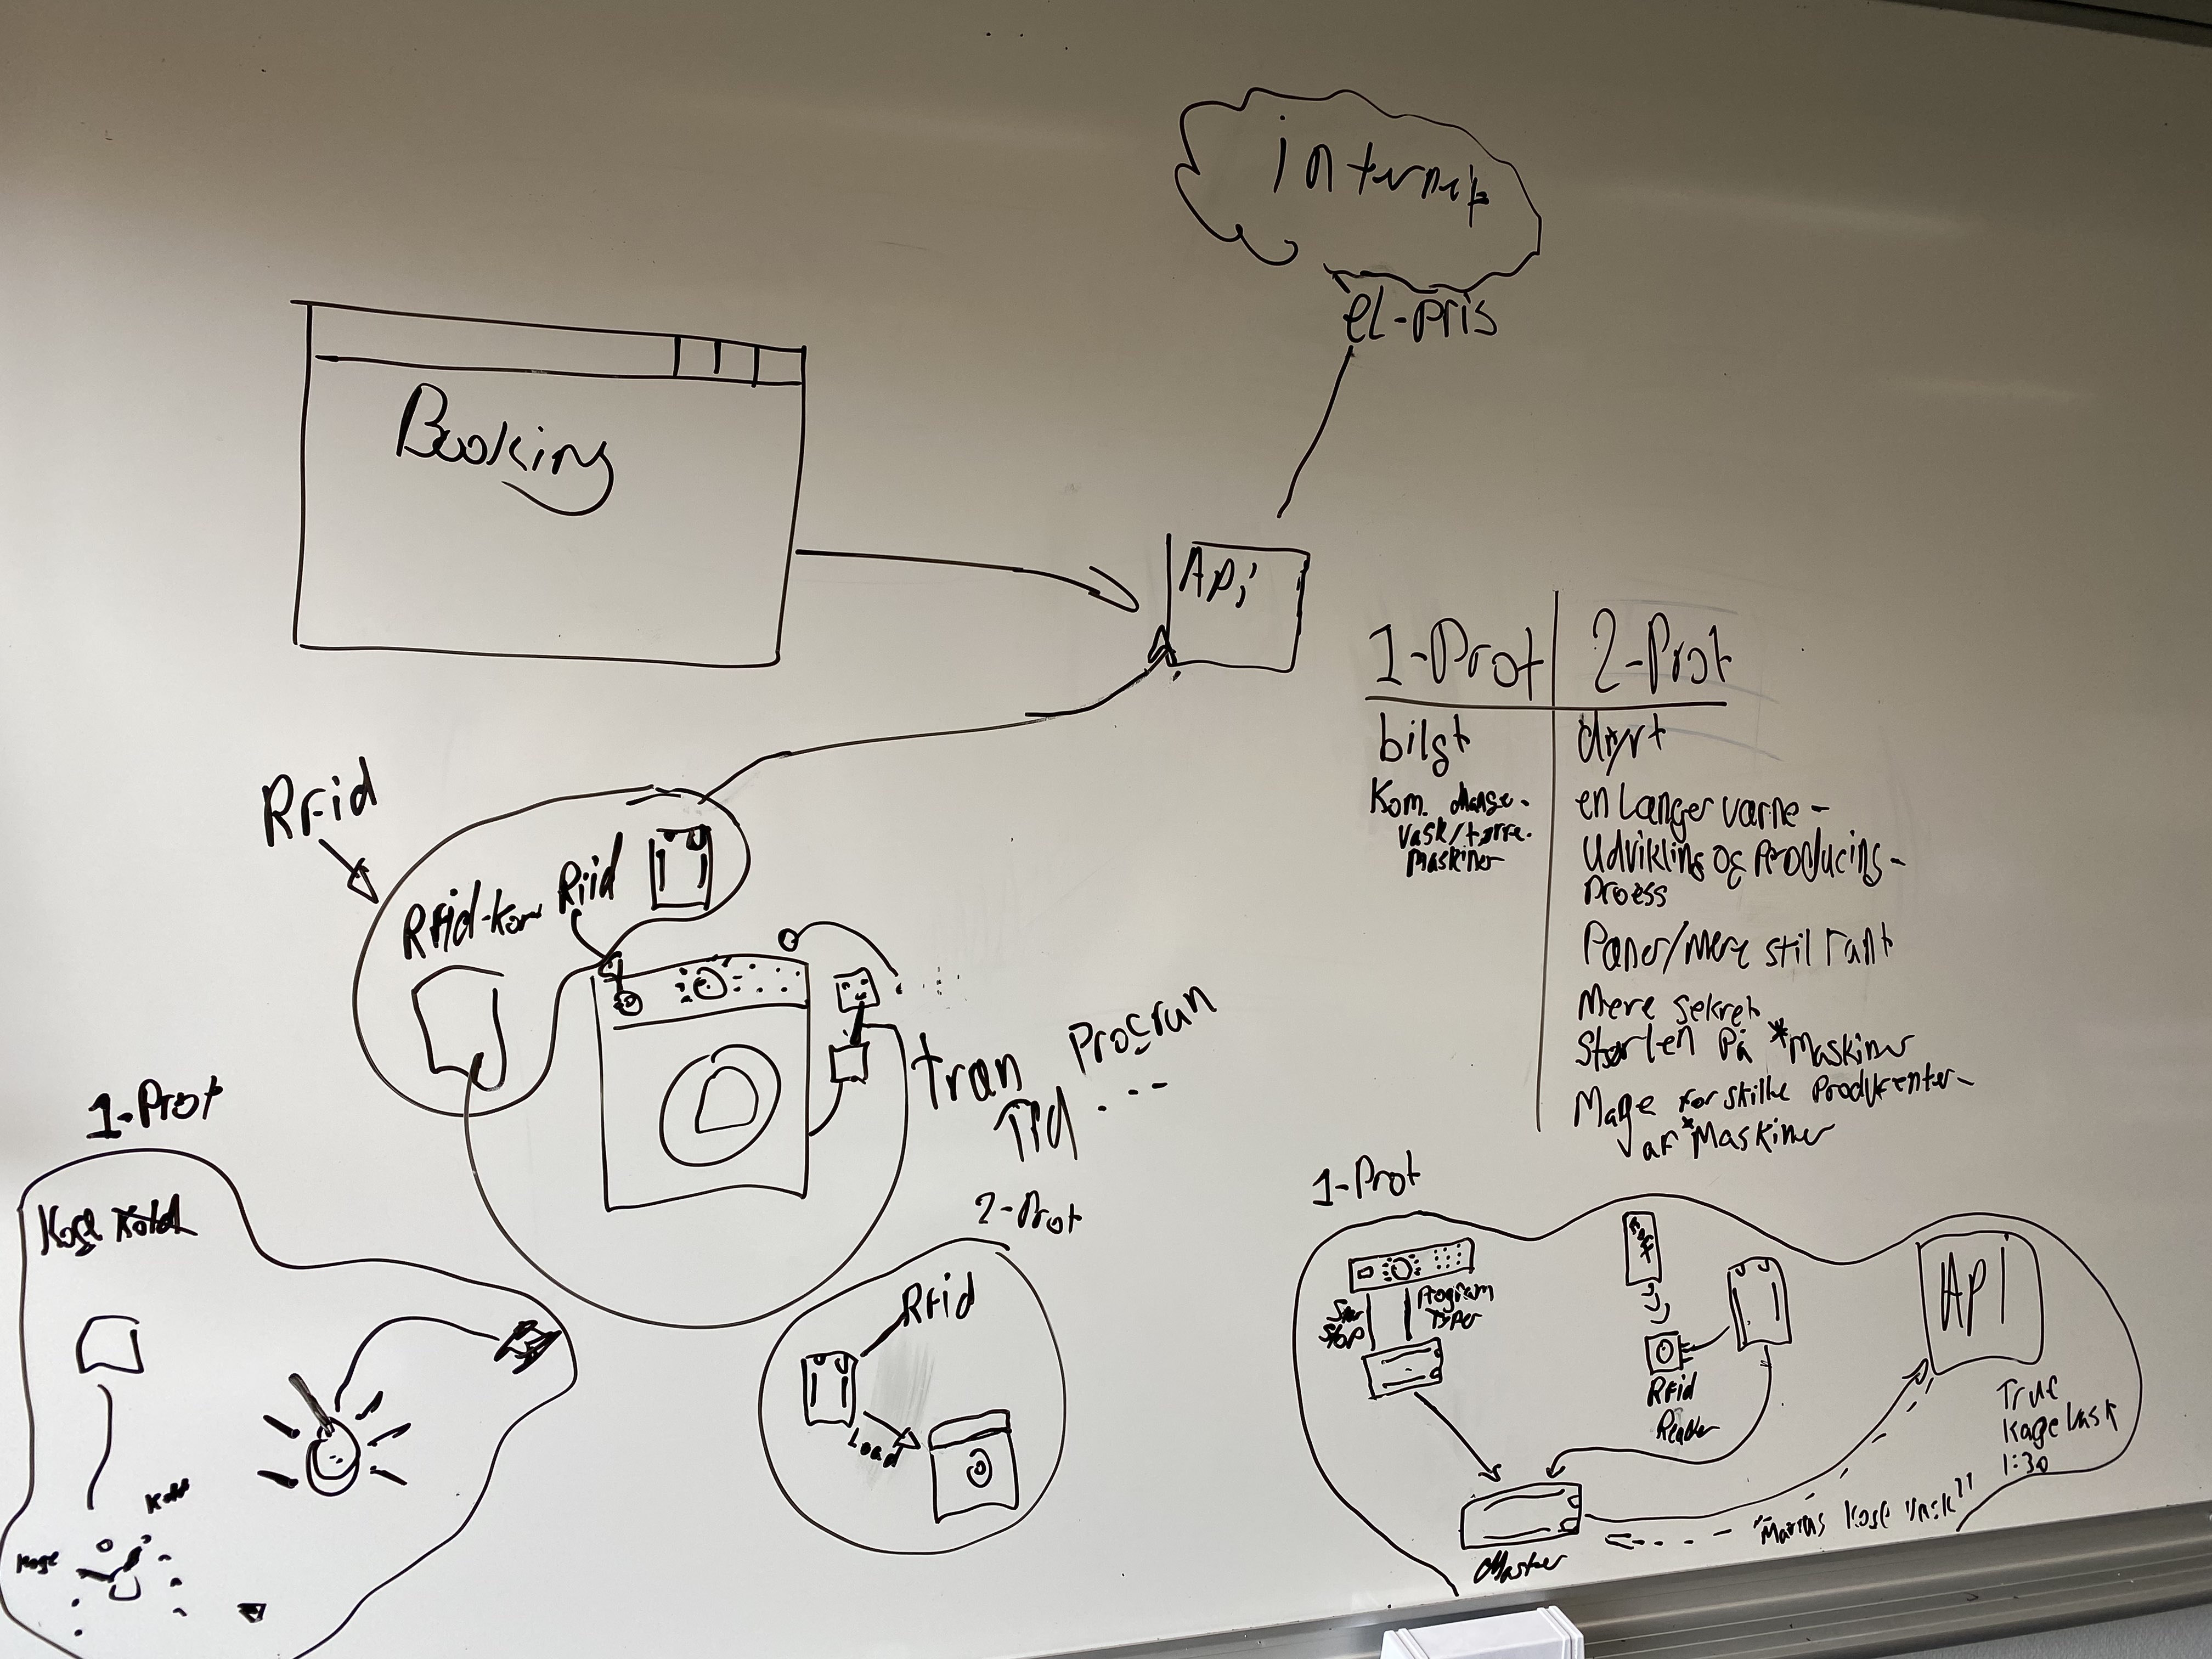 internet
el-pris
Booking
API
1-Prot
2-Prot
bilgt
dyrt
Kom. Mange-
vask/tørre.
Maskiner
en Langer varne-
Udvikling og Producing-
Process
Paner/Mere stilrant
Mere sekret
Størlen På *Maskiner
Mage forskilke Producenter-
af *Maskiner
Rfid
Rfid-Kom
Rfid
tran
Program
Tid
1-Prot
Koge
Koge
2-Prot
Rfid
Load
1-Prot
Stop
Program
Typer
Rfid
Reader
API
True
Koge Vask
1:30
Master